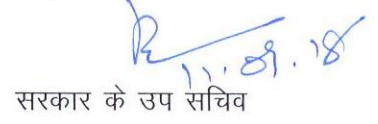 11.09.18
सरकार के उप सचिव